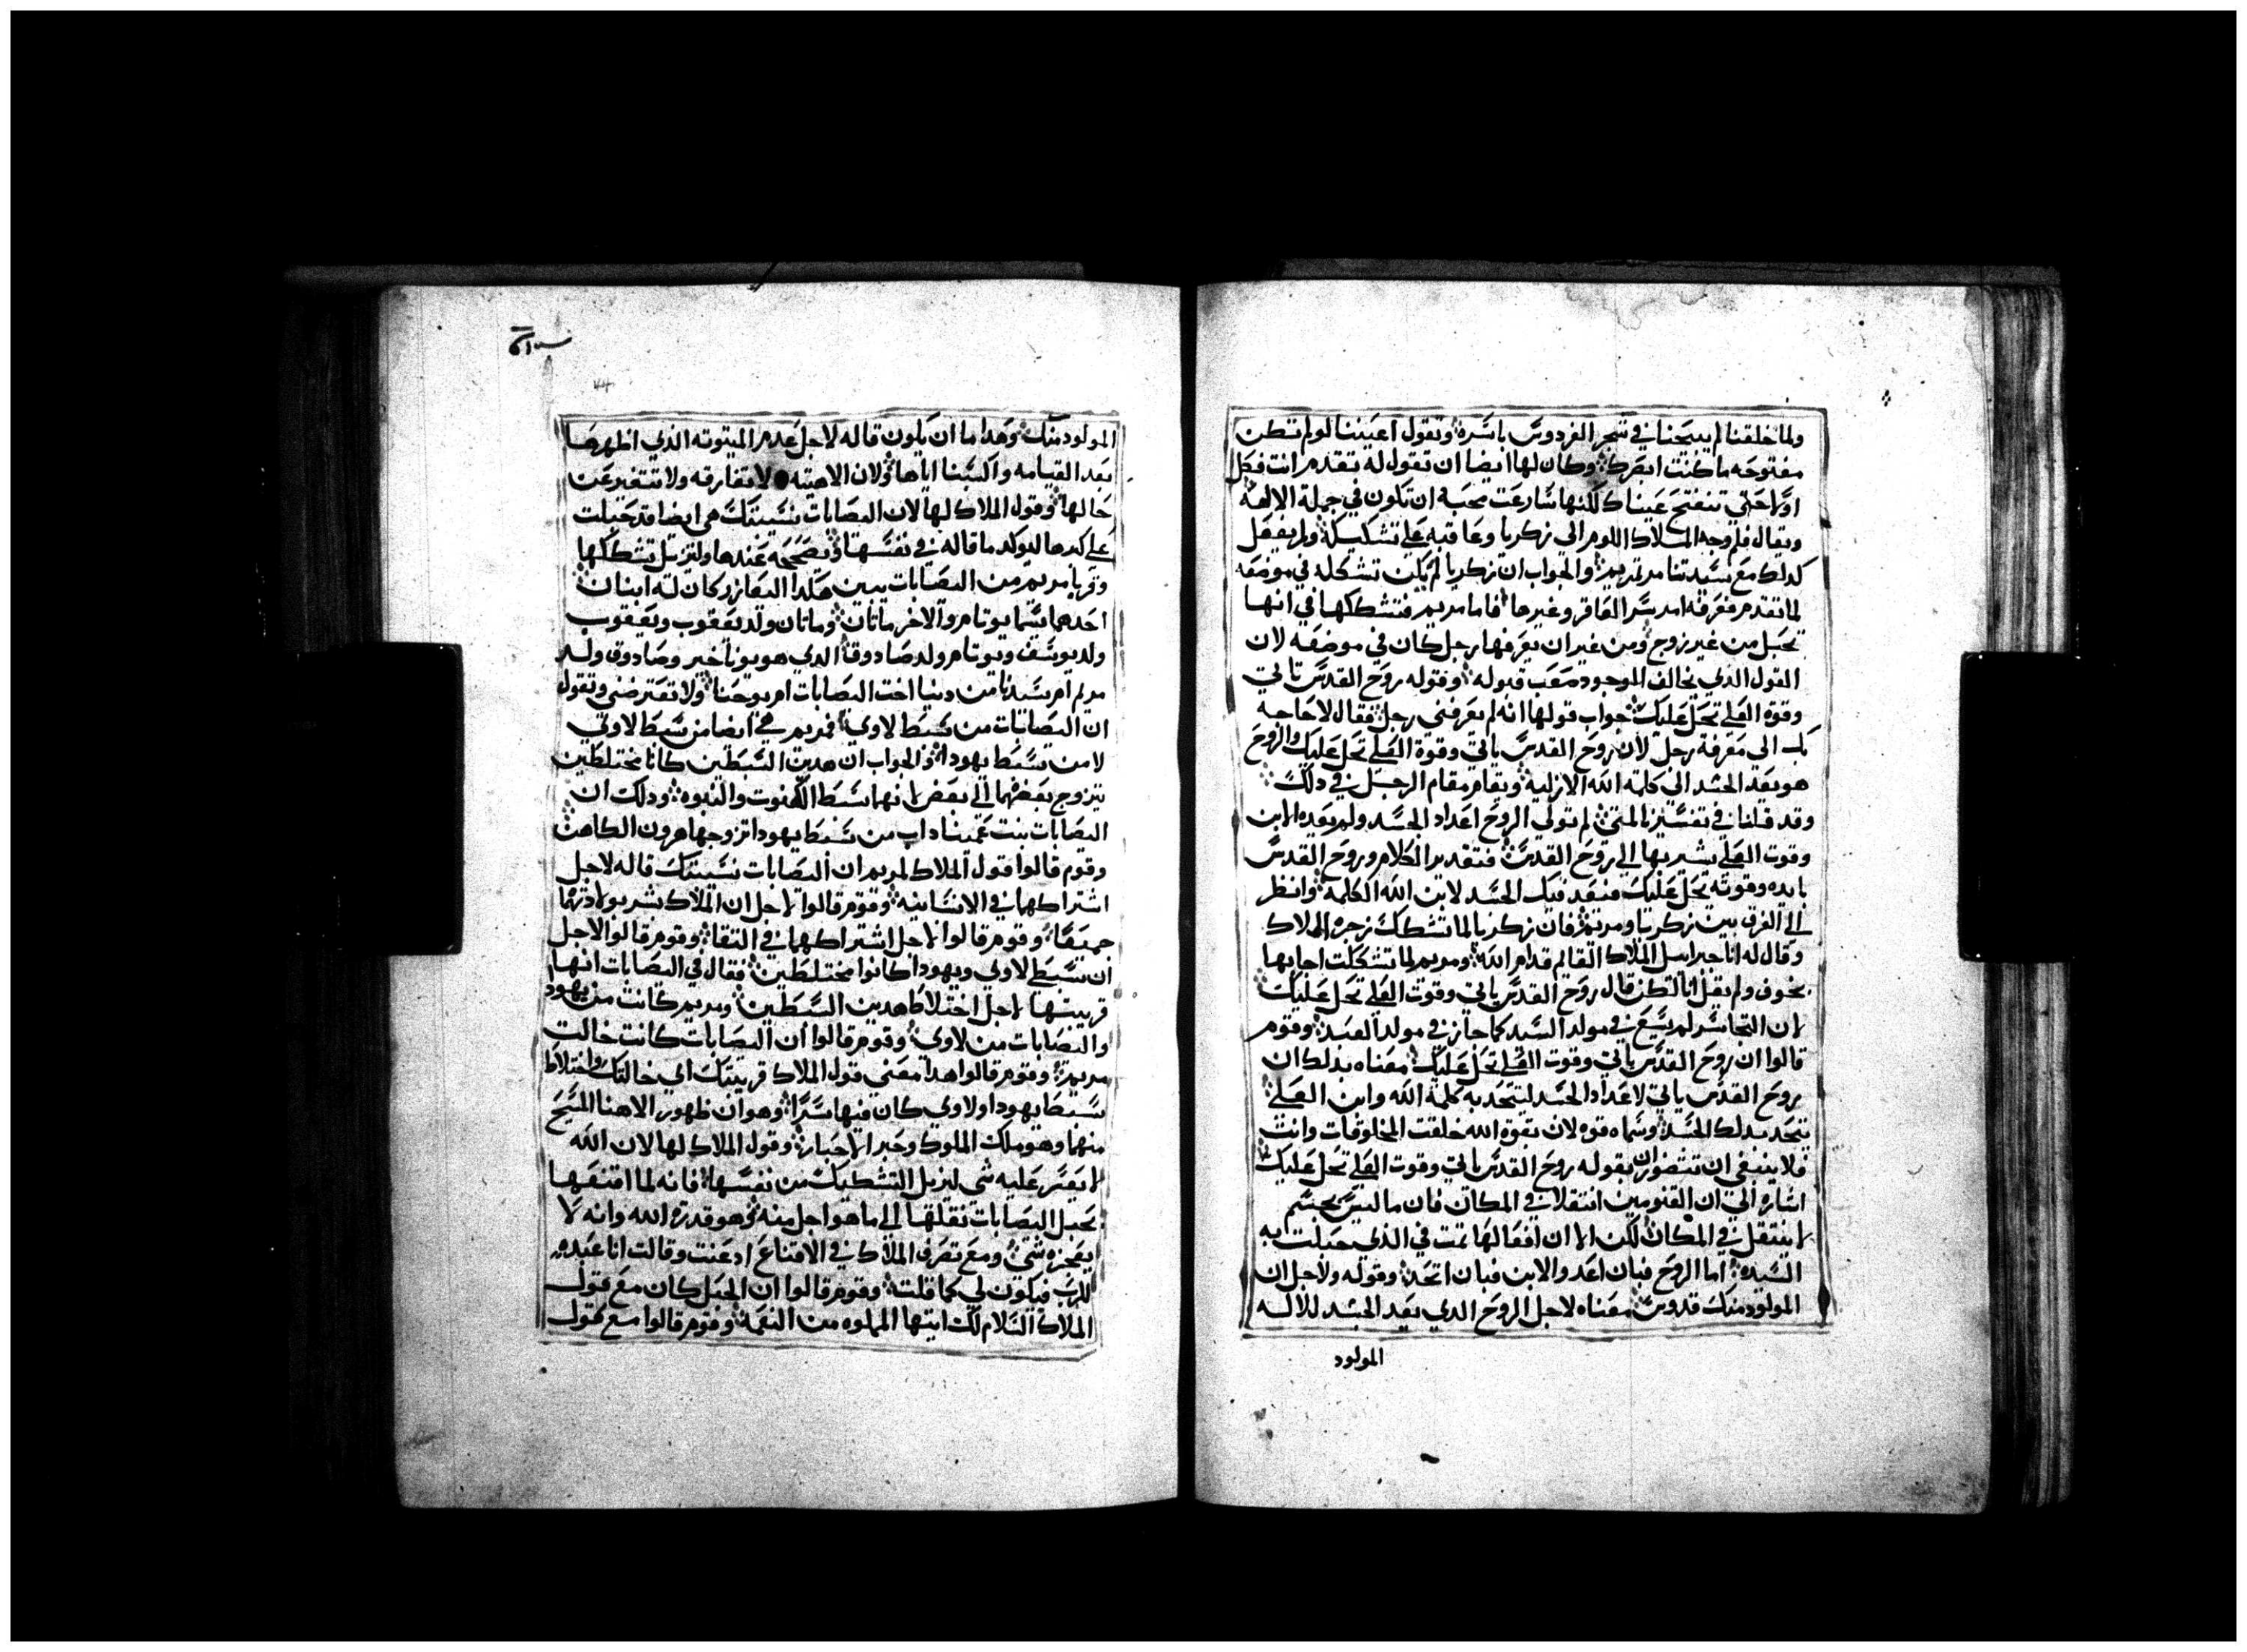 ولما خلقنا لم يبيحنا في شجر الفردوس باسره وتقول اعيننا لو لم تظن
مفتوحه ما كنت ابصرك وكان لها ايضا ان تقول له تقدم انت فكل
اولا حتي تنفتح عيناك لكنها سارعت محبه ان تكون في جملة الالهه
ويقال فلم وجه الملاك اللوم الى زكريا وعاقبه علي تشكيكه ولم يفعل
كدلك مع سيدتنا مرتمريم والجواب ان زكريا لم يكن تشككه في موضعه
لما تقدم فعرفه امر سارا العاقر وغيرها فاما مريم فتشككها في انها
تحبل من غير زوج ومن غير ان يعرفها رجل كان في موضعه لان
القول الدي يخالف الموجود صعب قبوله وقوله روح القدس تاتي
وقوة العلي تحل عليك جواب قولها انه لم يعرفني رجل فقال لا حاجه
بك الي معرفة رجل لان روح القدس ياتي وقوة العلي تحل عليك والروح
هو يعد الجسد الى كلمة الله الازليه ويقام مقام الرجل في دلك
وقد قلنا في تفسيرنا لمتى لم تولي الروح اعداد الجسد ولم يعده الابن
وقوت العلي يشير بها الي روح القدس فتقدير الكلام وروح القدس
بايده وقوته تحل عليك فتعد فيك الجسد لابن الله الكلمة وانظر
الي الفرق بين زكريا ومريم فان زكريا لما تشكك زجره الملاك
وقال له انا جبراييل الملاك القايم قدام الله ومريم لما تشككت اجابها
بخوف ولم يقل انا لكن قال روح القدس ياتي وقوت العلي تحل عليك
لان التجاسر لم يسع في مولد السيد كما جاز في مولد العبد وقوم
قالوا ان روح القدس ياتي وقوت العلي تحل عليك معناه بدلك ان
روح القدس ياتي لاعداد الجسد ليتحد به كلمة الله وابن العلي
يتحد بدلك الجسد وسماه قوه لان بقوة الله خلقت المخلوقات وانت
فلا ينبغي ان تتصور ان بقوله روح القدس ياتي وقوت العلي تحل عليك
اشاره الي ان القنومين انتقلا في المكان فان ما ليس بجسم
لا ينتقل في المكان لكن الا ان افعالهما تمت في الدي حبلت به
السيده اما الروح فبان اعد والابن فبان اتحد وقوله ولاجل ان
المولود منك قدوس معناه لاجل الروح الدي يعد الجسد للاله
المولود
المولود منك وهدا ما ان يكون قاله لاجل عدم الميتوته الذي اظهرها
بعد القيامه واكسبنا اياها ولان الاهيته لا تفارقه ولا تتغير عن
حالها وقول الملاك لها لان اليصابات نسيبتك هي ايضا قد حبلت
علي كبرها ليوكد ما قاله في نفسها ويصححه عندها وليزيل تشككها
وقربا مريم من اليصابات يبين هكدا اليعازر كان له ابنان
احدهما يسما يوتام والاخر ماتان وماتان ولد يعقوب ويعقوب
ولد يوسف ويوتام ولد صادوق الدي هو يوناخير وصادوق ولد
مريم ام سيدنا من دينا اخت اليصابات ام يوحنا ولا تعترضني وتقول
ان اليصابات من سبط لاوي فمريم هي ايضا من سبط لاوي
لا من سبط يهودا والجواب ان هدين السبطين كانا مختلطين
يتزوج بعضهما الي بعض لانهما سبط الكهنوت والنبوه ودلك ان
اليصابات بنت عميناداب من سبط يهودا تزوجها هرون الكاهن
وقوم قالوا قول الملاك لمريم ان اليصابات نسيبتك قاله لاجل
اشتراكهما في الانسانيه وقوم قالوا لاجل ان الملاك بشر بولادتهما
جميعا وقوم قالوا لاجل اشتراكهما في التقا وقوم قالوا لاجل
ان سبط لاوي ويهودا كانوا مختلطين فقال في اليصابات انها
قريبتها لاجل اختلاط هدين السبطين ومريم كانت من يهودا
واليصابات من لاوي وقوم قالوا ان اليصابات كانت خالت
مريم وقوم قالوا هدا معني قول الملاك قريبتك اي خالتك واختلاط
سبط يهودا ولاوي كان فيها سرا وهو ان ظهور الاهنا المسيح
منهما وهو ملك الملوك وحبر الاحبار وقول الملاك لها لان الله
لا يعسر عليه شي ليزيل التشكيك من نفسها فانه لما اقنعها
بحبل اليصابات نقلها الي ما هو اجل منه وهو قدرة الله وانه لا
يعجزه شي ومع تصرف الملاك في الاقناع ادعنت وقالت انا عبده
للرب فيكون لي كما قلت وقوم قالوا ان الحبل كان مع قول
الملاك السلام لك ايتها المملوه من النعمة وقوم قالوا مع قول